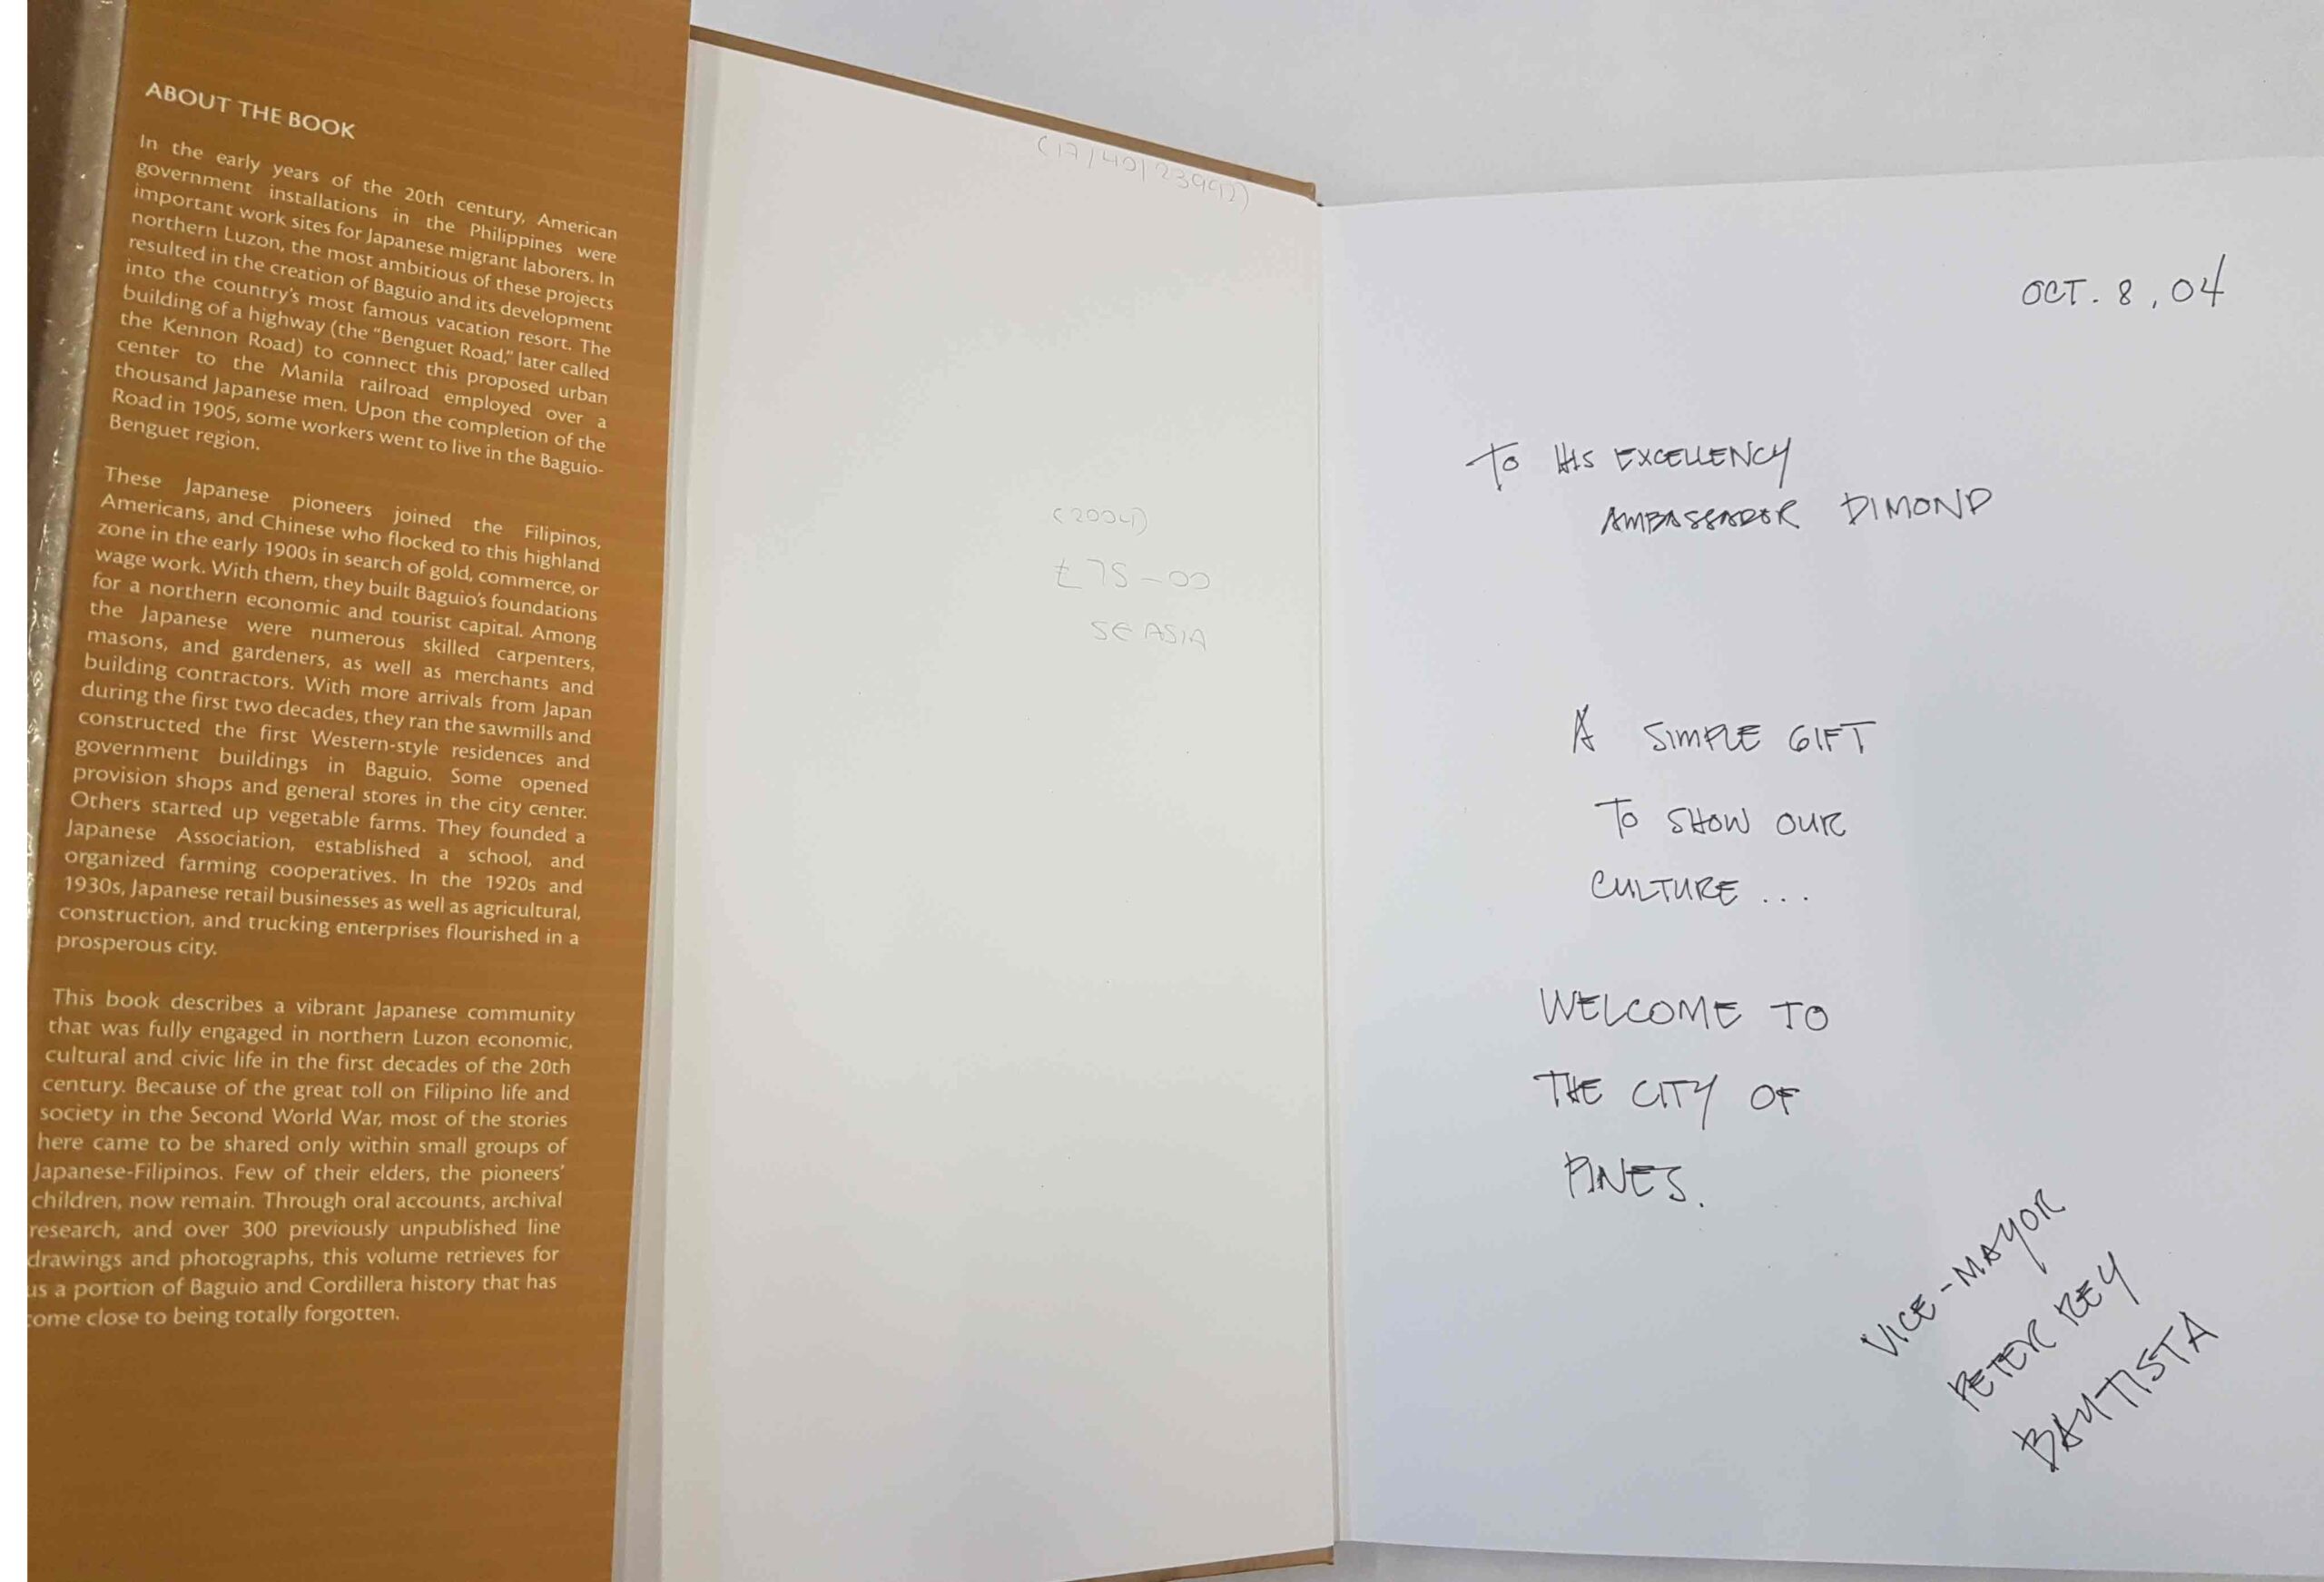 ABOUT THE BOOK
In the early years of the 20th century, American
government installations in the Philippines were
important work sites for Japanese migrant laborers. In
northern Luzon, the most ambitious of these projects
resulted in the creation of Baguio and its development
into the country's most famous vacation resort. The
building of a highway (the "Benguet Road," later called
the Kennon Road) to connect this proposed urban
center to the Manila railroad employed over a
thousand Japanese men. Upon the completion of the
Road in 1905, some workers went to live in the Baguio-
Benguet region.
These Japanese pioneers joined the Filipinos,
Americans, and Chinese who flocked to this highland
zone in the early 1900s in search of gold, commerce, or
wage work. With them, they built Baguio's foundations
for a northern economic and tourist capital. Among
the Japanese were numerous skilled carpenters,
masons, and gardeners, as well as merchants and
building contractors. With more arrivals from Japan
during the first two decades, they ran the sawmills and
constructed the first Western-style residences and
government buildings in Baguio. Some opened
provision shops and general stores in the city center.
Others started up vegetable farms. They founded a
Japanese Association, established a school, and
organized farming cooperatives. In the 1920s and
1930s, Japanese retail businesses as well as agricultural,
construction, and trucking enterprises flourished in a
prosperous city.
This book describes a vibrant Japanese community
that was fully engaged in northern Luzon economic,
cultural and civic life in the first decades of the 20th
century. Because of the great toll on Filipino life and
society in the Second World War, most of the stories
here came to be shared only within small groups of
Japanese-Filipinos. Few of their elders, the pioneers'
children, now remain. Through oral accounts, archival
research, and over 300 previously unpublished line
drawings and photographs, this volume retrieves for
us a portion of Baguio and Cordillera history that has
come close to being totally forgotten.
(2004)
£75-00
SE ASIA
OCT. 8, 04
TO HIS EXCELLENCY
AMBASSADOR DIMOND
A SIMPLE GIFT
TO SHOW OUR
CULTURE ...
WELCOME TO
THE CITY OF
PINES.
VICE-MAYOR
PETER REY
BAUTISTA